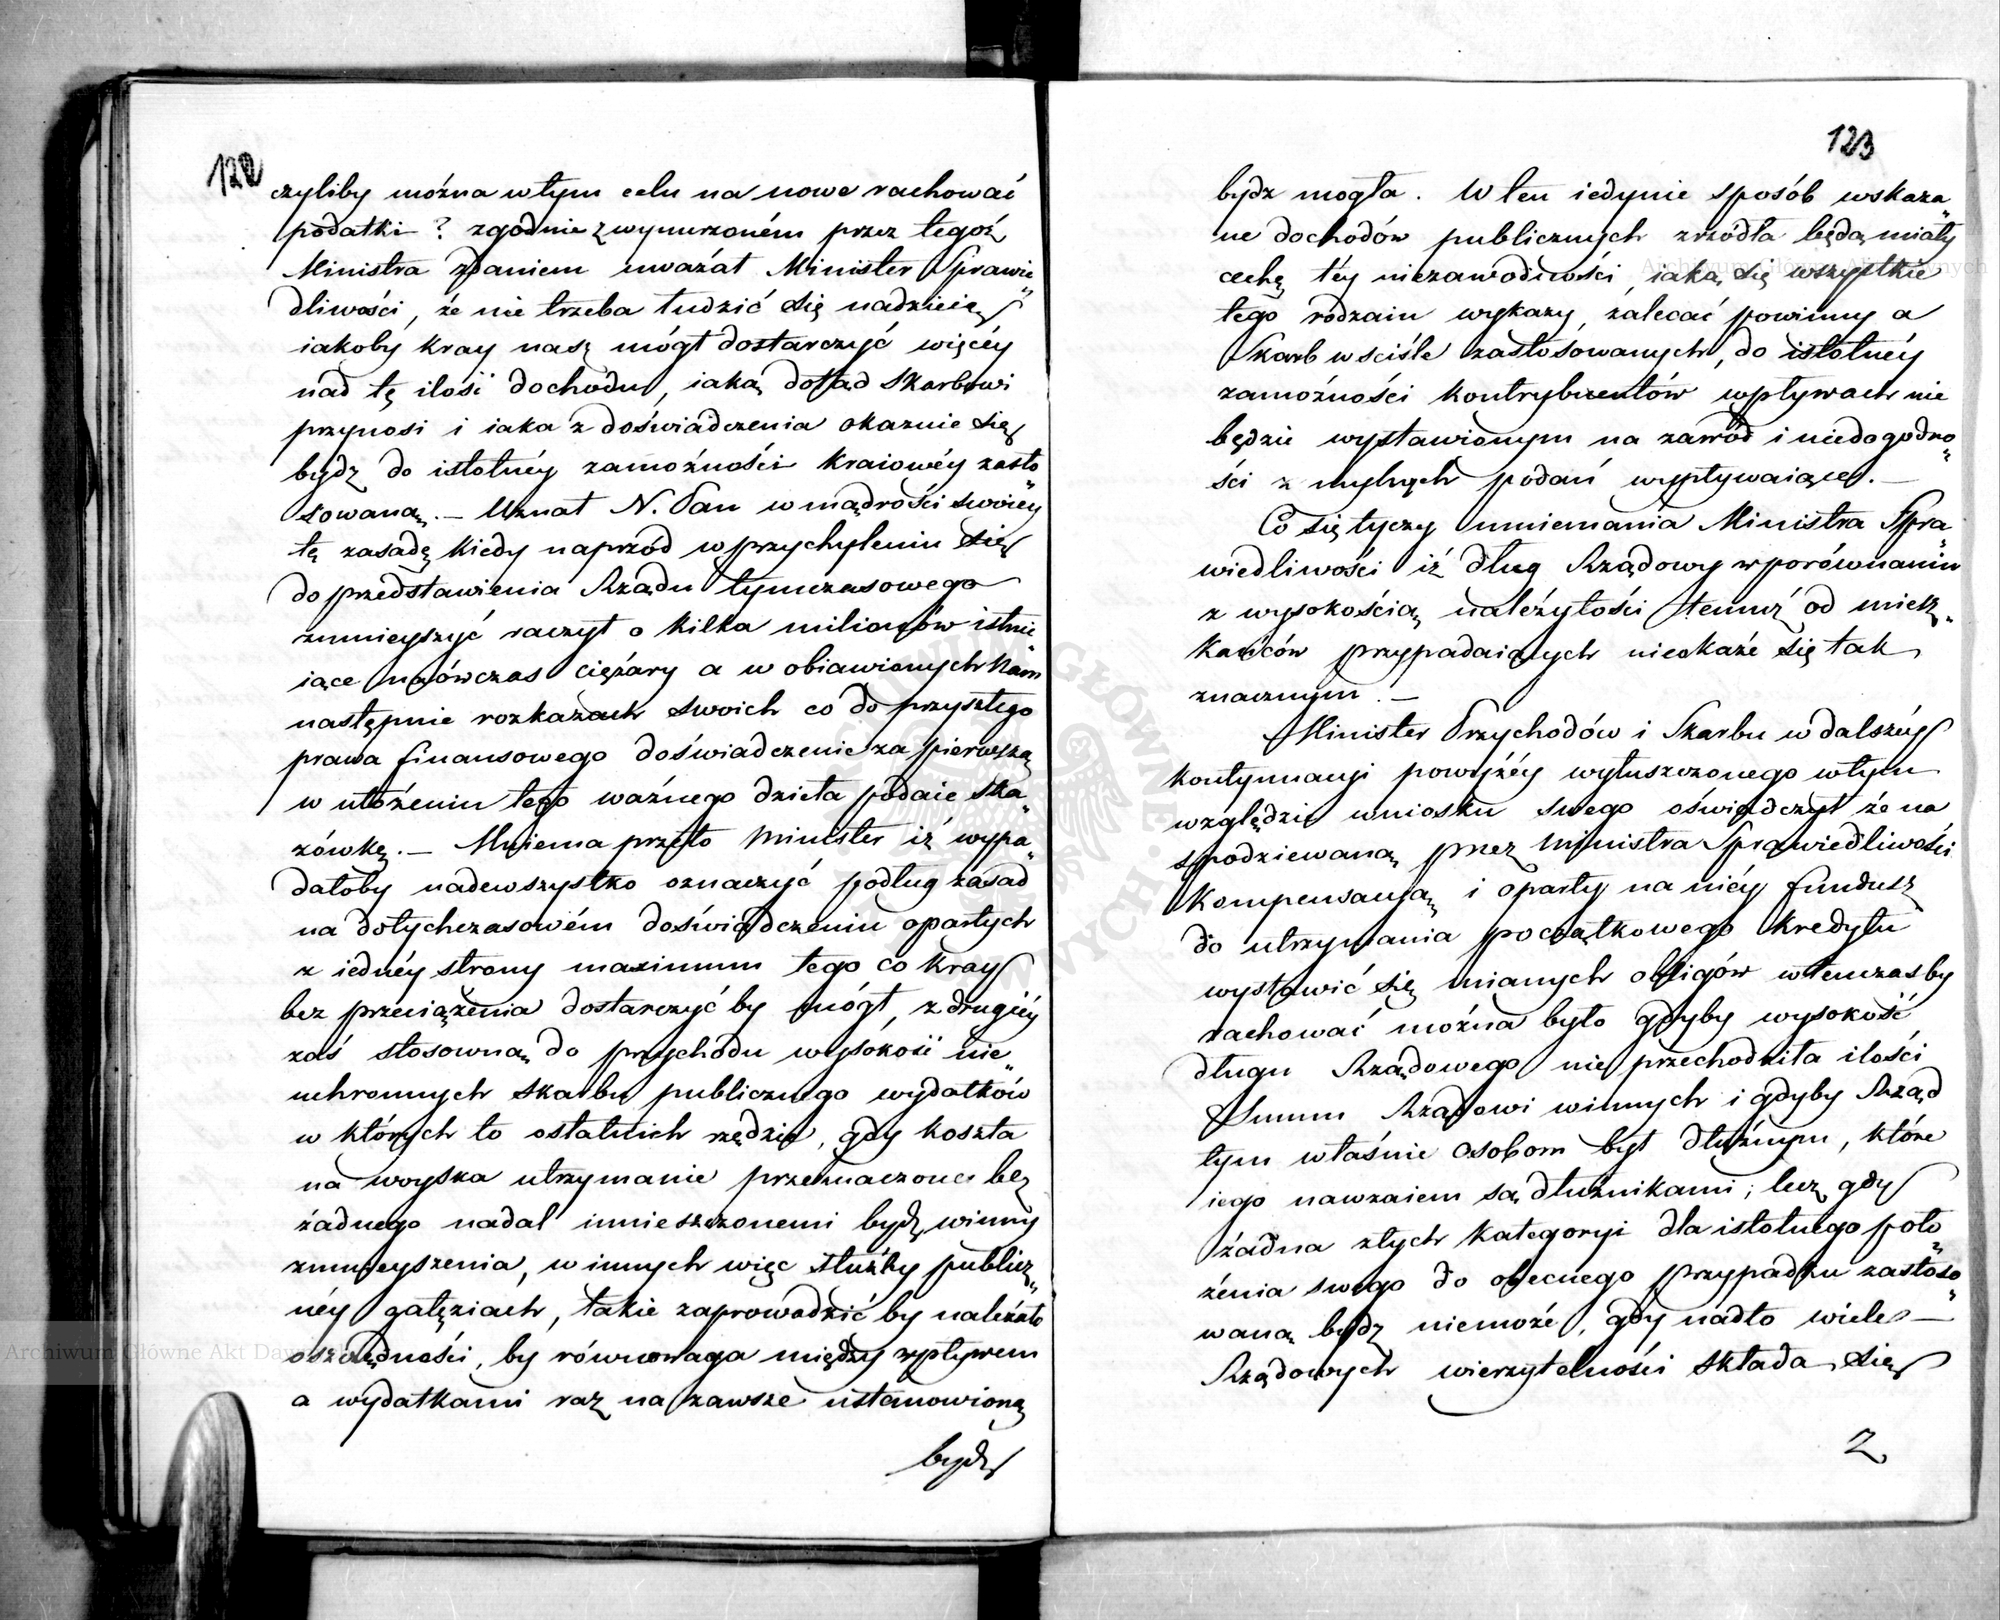 122
czyliby można w tym celu na nowe rachować
podatki? zgodnie z wynurzoném przez tegoż
Ministra zdaniem uważał Minister Sprawie„
dliwości, że nie trzeba łudzić się nadzieią
iakoby kray nasz mógł dostarczyć więcéy
nad tę ilość dochodu, iaką dotąd Skarbowi
przynosi i iaka z doświadczenia okazuie się
bydz do istotnéy zamożności kraiowéy zasto„
sowaną. — Uznał N. Pan w mądrości swoiéy
tę zasadę kiedy naprzód w przychyleniu się
do przedstawienia Rządu tymczasowego
zmnieyszyć raczył o kilka milionów istnie„
iące naówczas ciężary a w obiawionych Nam
następnie rozkazach swoich co do przyszłego
prawa finansowego doświadczenie za pierwszą
w ułożeniu tego ważnego dzieła podaie ska„
zówkę. — Mniema przeto Minister iż wypa„
dałoby nadewszystko oznaczyć podług zasad
na dotychczasowém doświadczeniu opartych
z iednéy strony maximum tego co kray
bez przeciążenia dostarczyć by mógł, z drugiéy
zaś stosowną do przychodu wysokość nie„
uchronnych skarbu publicznego wydatków
w których to ostatnich rzędzie, gdy koszta
na woyska utrzymanie przeznaczone bez
żadnego nadal umieszczonemi bydz winny
zmnieyszenia, w innych więc służby publicz„
néy gałęziach, takie zaprowadzić by należało
oszczędności, by równowaga między wpływem
a wydatkami raz na zawsze ustanowioną
bydz
123
bydz mogła. W ten iedynie sposób wskaza„
ne dochodów publicznych zrzódła będą miały
cechę téy niezawodności, iaką się wszystkie
tego rodzaiu wykazy zalecać powinny a
Skarb w ściśle zastosowanych do istotnéy
zamożności kontrybuentów wpływach nie
będzie wystawionym na zawód i niedogodno„
ści z mylnych podań wypływaiące. —
Co się tyczy mniemania Ministra Spra„
wiedliwości iż dług Rządowy w porównaniu
z wysokością należytości temuż od miesz„
kańców przypadaiących nieokaże się tak
znacznym. —
Minister Przychodów i Skarbu w dalszéy
kontynuacyi powyżéy wyłuszczonego w tym
względzie wniosku swego oświadczył że na
spodziewaną przez Ministra Sprawiedliwości
kompensacyą i oparty na niéy fundusz
do utrzymania początkowego kredytu
wystawić się mianych obligów wtenczas by
rachować można było gdyby wysokość
długu Rządowego nie przechodziła ilości
Summ Rządowi winnych i gdyby Rząd
tym właśnie osobom był dłużnym, które
iego nawzaiem są dłużnikami; lecz gdy
żadna z tych kategoryi dla istotnego poło„
żenia swego do obecnego przypadku zastoso„
waną bydz niemoże, gdy nadto wiele —
Rządowych wierzytelności składa się
z
Archiwum Główne Akt Dawnych